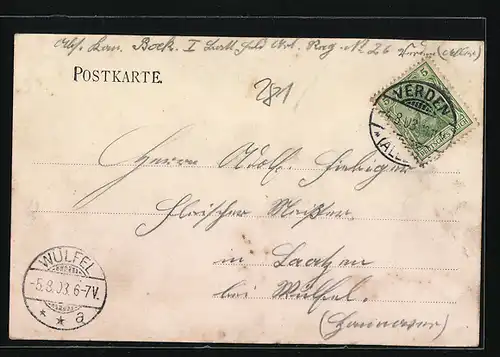 Abs. Kan. Bock. I Batt. Feld Art. Reg. No 26 Verden (Aller)
POSTKARTE.
281
VERDEN
.8.03.
* (ALLE
5
Herrn Adolf
Fleischer Meister
in Laatzen
bei Wülfel.
(Hannover)
WÜLFEL
-5.8.03.6-7V.
* * a